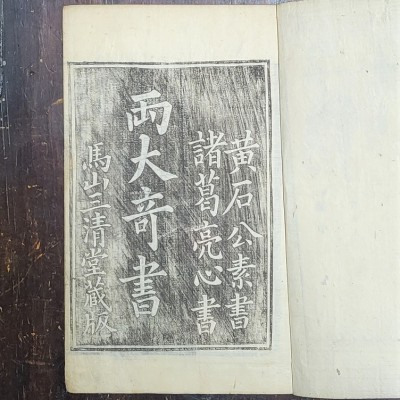 黄石公素書
諸葛亮心書
兩大奇書
馬山三清堂藏版